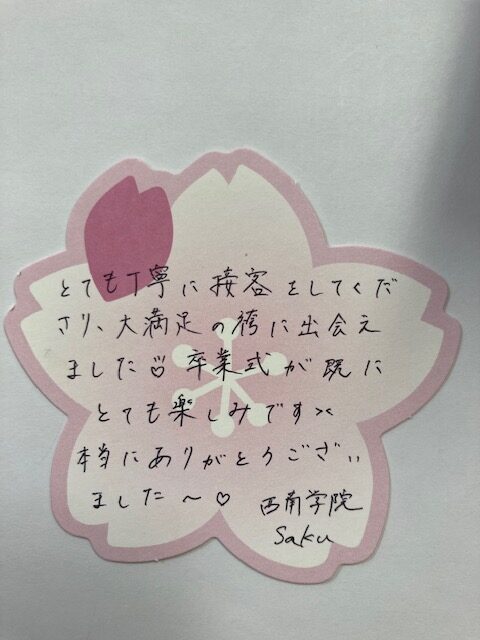 とても丁寧に接客をしてくだ
さり、大満足の袴に出会え
ました♡ 卒業式が既に
とても楽しみです><
本当にありがとうござい
ました～♡ 西南学院
Saku